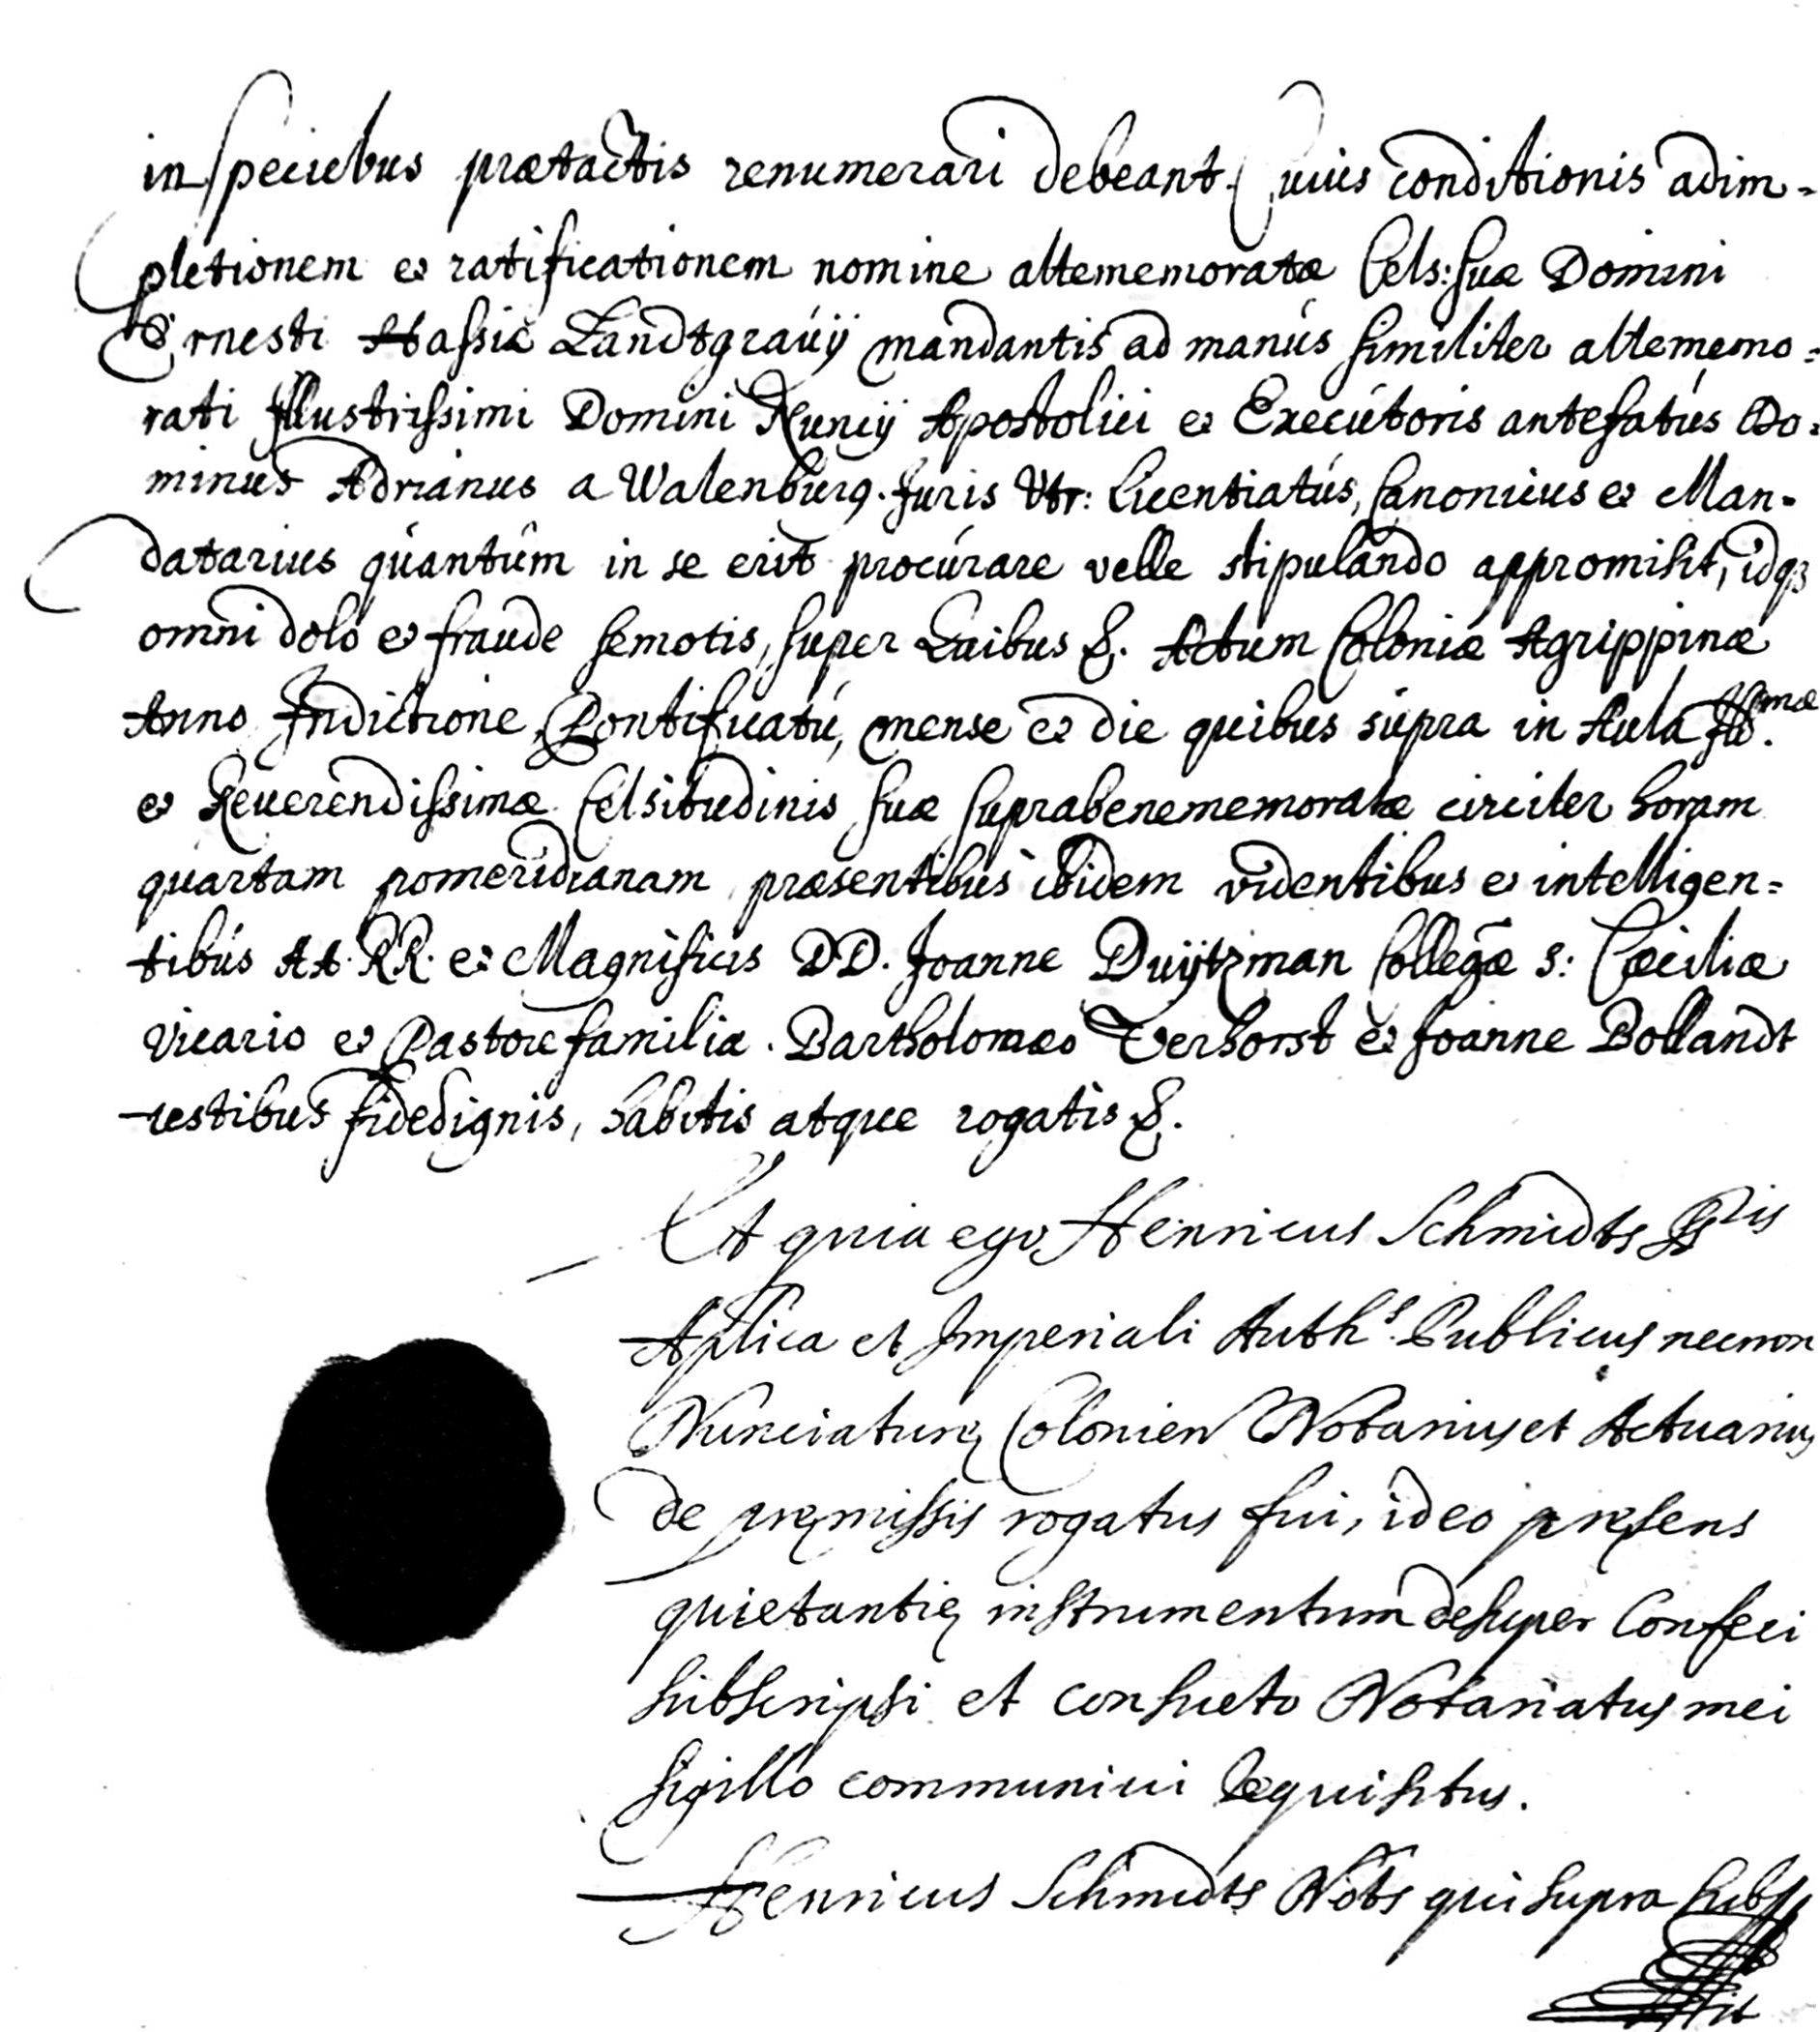 in speciebus prætactis renumerari debeant. Cuius conditionis adim-
pletionem et ratificationem nomine altememoratæ Cels: suæ Domini
Ernesti Hassiæ Landtgrauij mandantis ad manús similiter altememo=
rati Illustrissimi Domini Nuncij Apostolici et Execútoris antefatús Do=
minus Adrianus a Walenburg. Juris Vtr: Licentiatús, Canonicus et Man-
datarius qúantúm in se erit procúrare velle stipulando appromisit, idq3
omni dolo et fraude semotis, super Quibus &. Actum Coloniæ Agrippinæ
Anno, Indictione, Pontificatú, mense et die quibus súpra in Aula
et Reuerendissimæ Celsitudinis suæ suprabenememoratæ circiter horam
quartam pomeridianam præsentibus ibidem videntibus et intelligen=
tibús AA. RR. et Magnificis DD. Joanne Duÿtzman Collegæ s: Cæciliæ
Vicario et Pastore familiæ. Bartholomæo Verhorst et Joanne Bollandt
testibus fidedignis, habitis atque rogatis &.
Et quia ego Henricus Schmidts
Aplica et Imperiali Auths. Publicus necnon
Nunciaturę Colonien Notarius et Actuarius
de pręmissis rogatus fui, ideo pręsens
quietantię instrumentum desuper Confeci
subscripsi et consueto Notariatus mei
sigillo communiui Requisitus.
Henricus Schmidts Nots qui supra subss